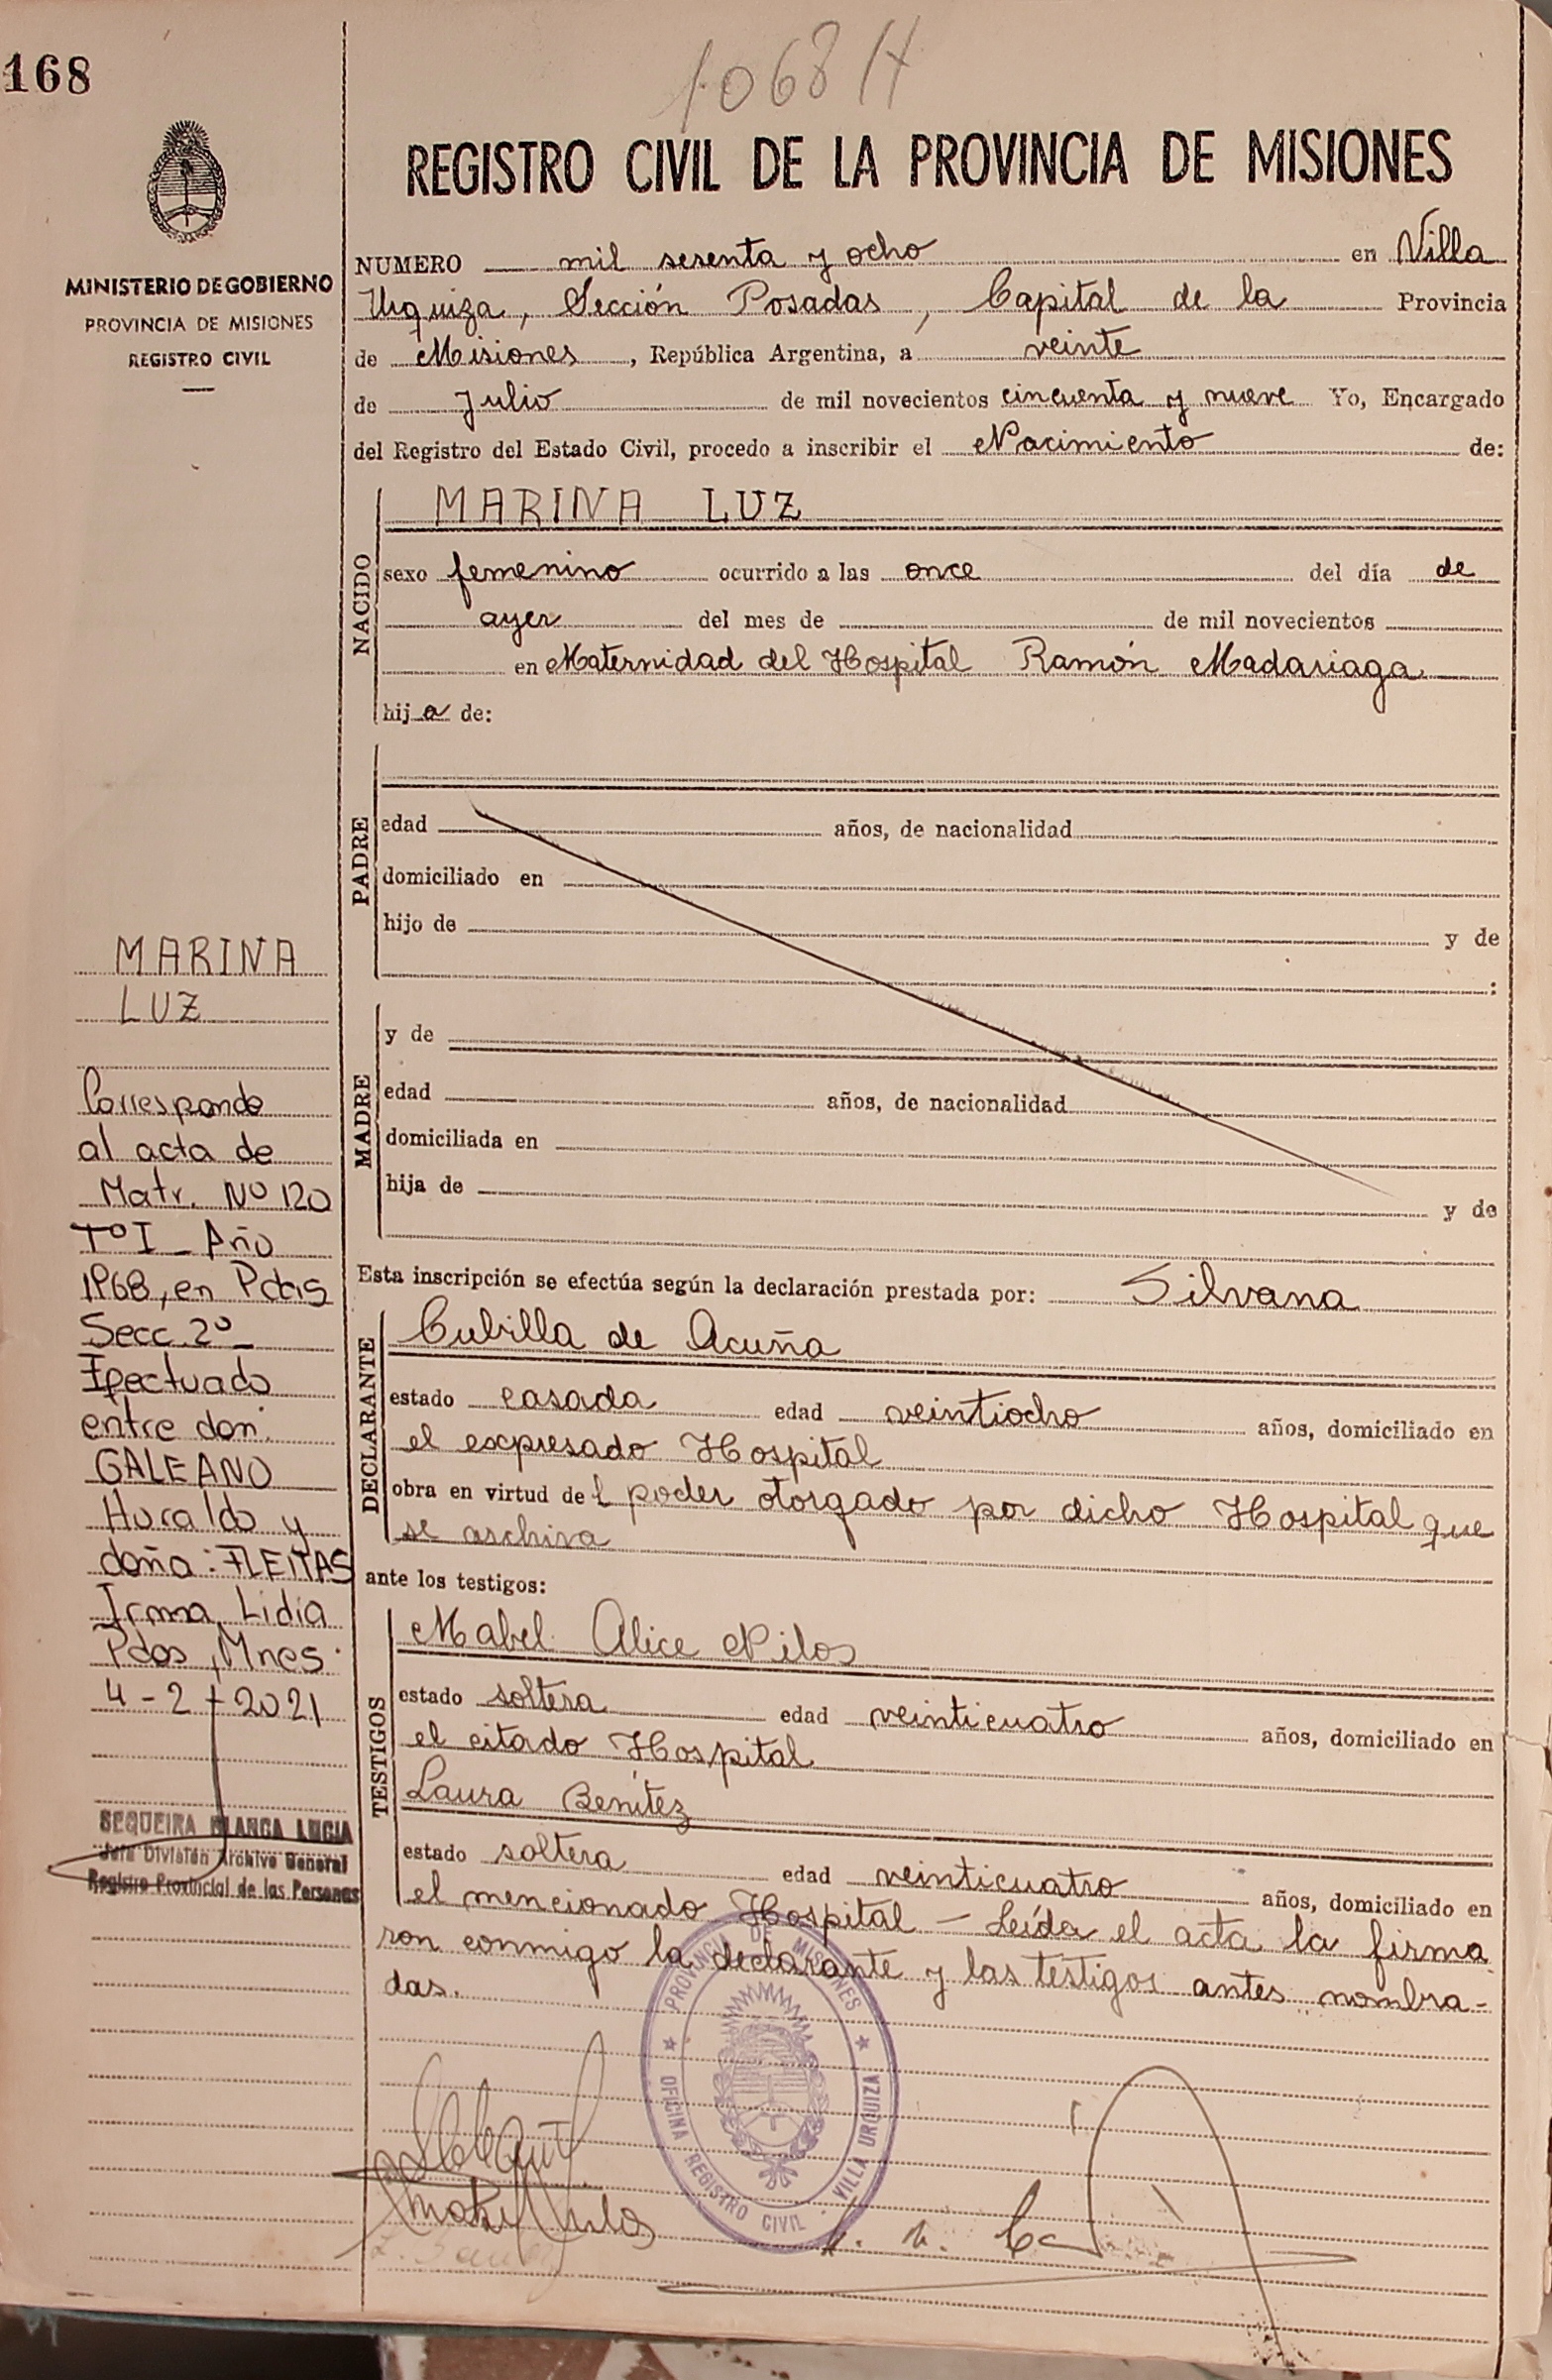 168
1068 H
REGISTRO CIVIL DE LA PROVINCIA DE MISIONES
MINISTERIO DE GOBIERNO
PROVINCIA DE MISIONES
REGISTRO CIVIL
NUMERO mil sesenta y ocho en Villa
Urquiza, Sección Posadas, Capital de la Provincia
de Misiones, República Argentina, a veinte
de Julio de mil novecientos cincuenta y nueve Yo, Encargado
del Registro del Estado Civil, procedo a inscribir el Nacimiento de:
NACIDO
MARINA LUZ
sexo femenino ocurrido a las once del día de
ayer del mes de de mil novecientos
en Maternidad del Hospital Ramón Madariaga
hija de:
PADRE
edad años, de nacionalidad
domiciliado en
hijo de y de
:
MADRE
y de
edad años, de nacionalidad
domiciliada en
hija de y de
Esta inscripción se efectúa según la declaración prestada por: Silvana
DECLARANTE
Cubilla de Acuña
estado casada edad veintiocho años, domiciliado en
el expresado Hospital
obra en virtud del poder otorgado por dicho Hospital que
se archiva
ante los testigos:
TESTIGOS
Mabel Alice Nilos
estado soltera edad veinticuatro años, domiciliado en
el citado Hospital
Laura Benítez
estado soltera edad veinticuatro años, domiciliado en
el mencionado Hospital - Leída el acta la firma
ron conmigo la declarante y las testigos antes nombra-
das.
MARINA
LUZ
Corresponde
al acta de
Matr. Nº 120
Tº I - Año
1968, en Pdas
Secc. 2º -
Efectuado
entre don:
GALEANO
Huraldo y
doña: FLEITAS
Irma Lidia
Pdas, Mnes.
4-2-2021
SEQUEIRA BLANCA LUCIA
Jefa División Archivo General
Registro Provincial de las Personas
PROVINCIA DE MISIONES
OFICINA REGISTRO CIVIL - VILLA URQUIZA